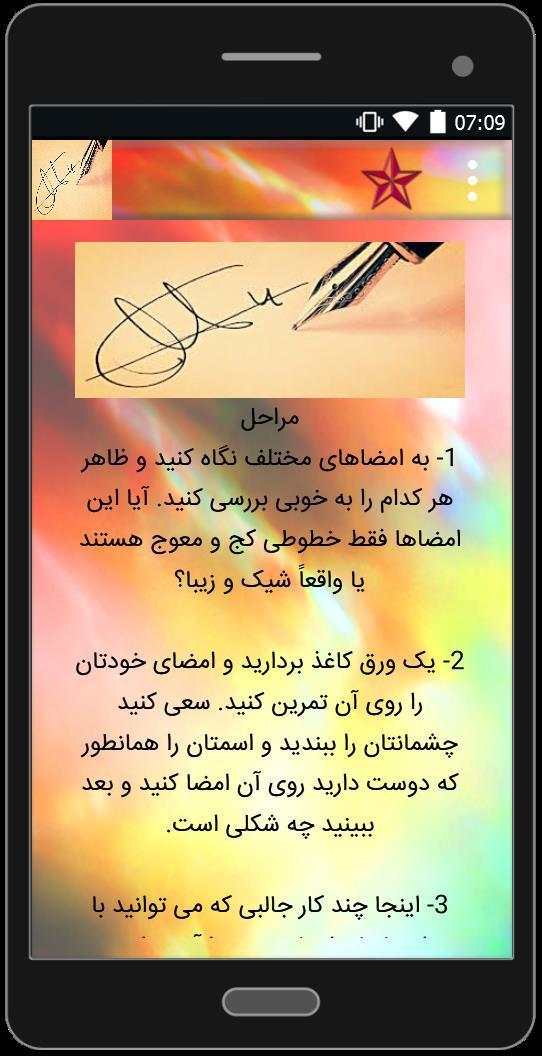 07:09
مراحل
1- به امضاهای مختلف نگاه کنید و ظاهر
هر کدام را به خوبی بررسی کنید. آیا این
امضاها فقط خطوطی کج و معوج هستند
یا واقعاً شیک و زیبا؟
2- یک ورق کاغذ بردارید و امضای خودتان
را روی آن تمرین کنید. سعی کنید
چشمانتان را ببندید و اسمتان را همانطور
که دوست دارید روی آن امضا کنید و بعد
ببینید چه شکلی است.
3- اینجا چند کار جالبی که می توانید با